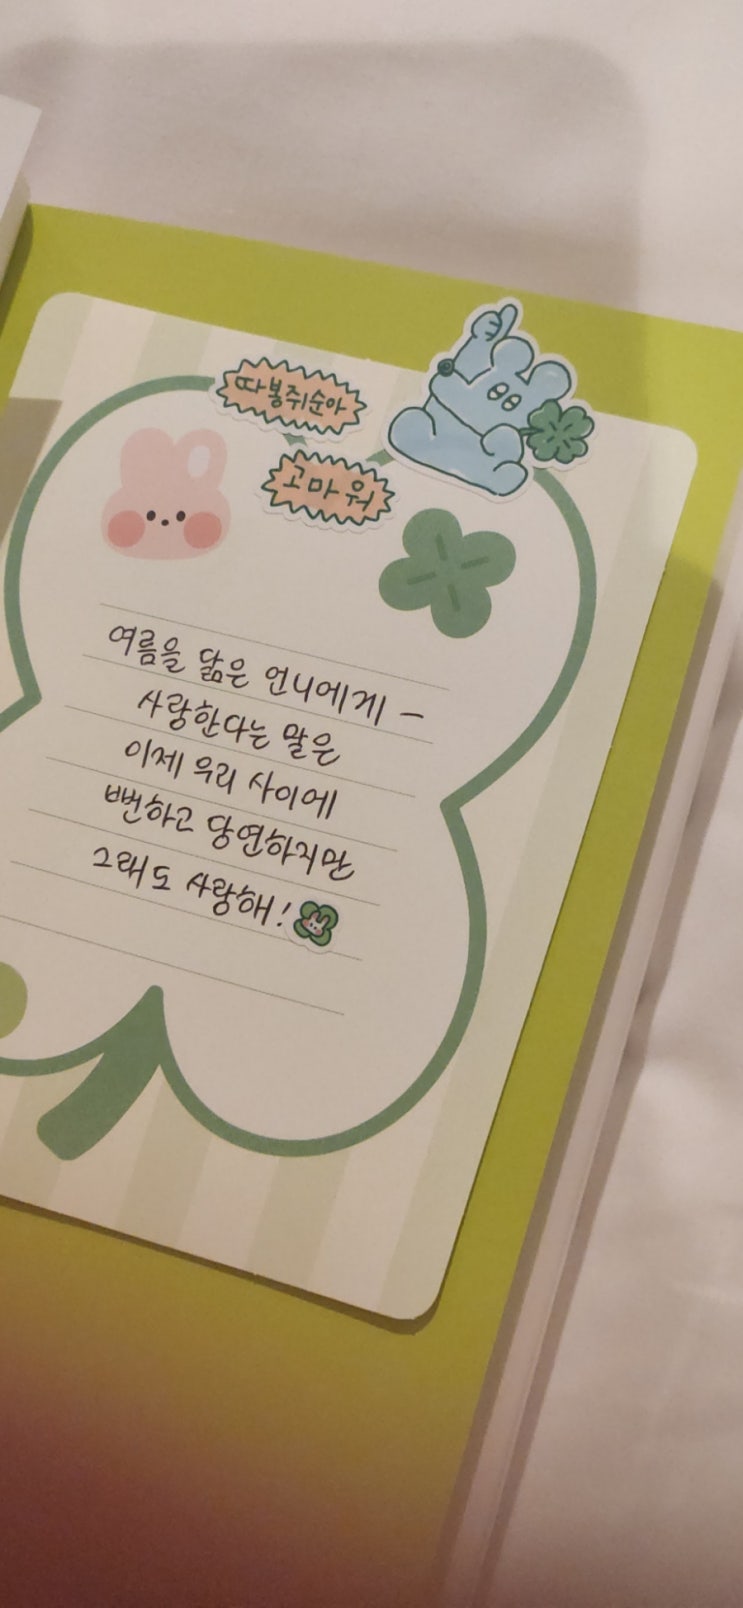 따봉쥐순아
고마워
여름을 닮은 언니에게 -
사랑한다는 말은
이제 우리 사이에
뻔하고 당연하지만
그래도 사랑해!